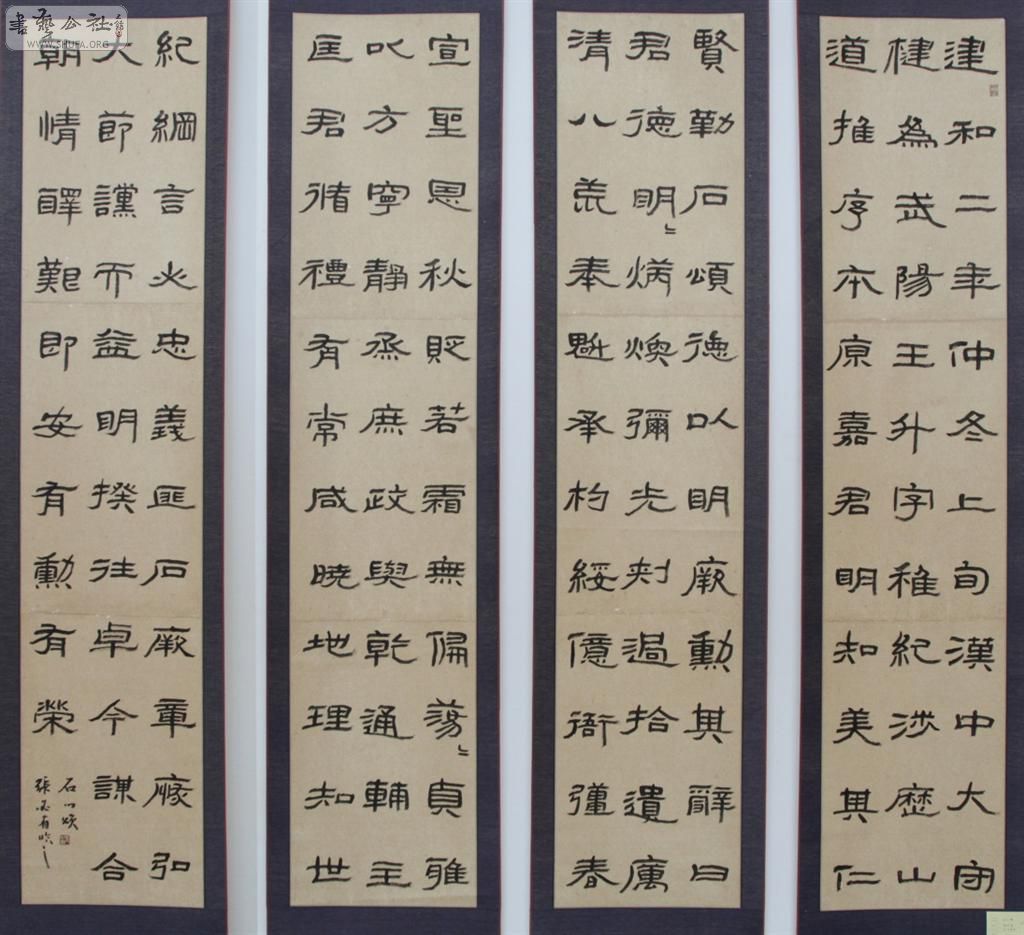 建和二年仲冬上旬漢中大守
楗為武陽王升字稚紀涉歷山
道推序本原嘉君明知美其仁
賢勒石頌德以明厥勳其辭曰
君德明〻炳煥彌光刺過拾遺厲
清八荒奉魁承杓綏億衙彊春
宣聖恩秋貶若霜無偏蕩〻貞雅
以方寧靜烝庶政與乾通輔主
匡君循禮有常咸曉地理知世
紀綱言必忠義匪石厥章弘
大節讜而益明揆往卓今謀合
朝情醳艱即安有勳有榮
石門頌
張臨之
書藝公社
WWW.SHUFA.ORG